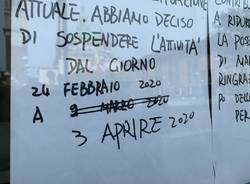 ATTUALE. ABBIAMO DECISO
DI SOSPENDERE L'ATTIVITA'
DAL GIORNO
24 FEBBRAIO 2020
A 9 MARZO 2020
3 APRIRE 2020
CONTRI
A RIDUR
LA POSS
DI MA
RINGRAZ
PO DELL
PER